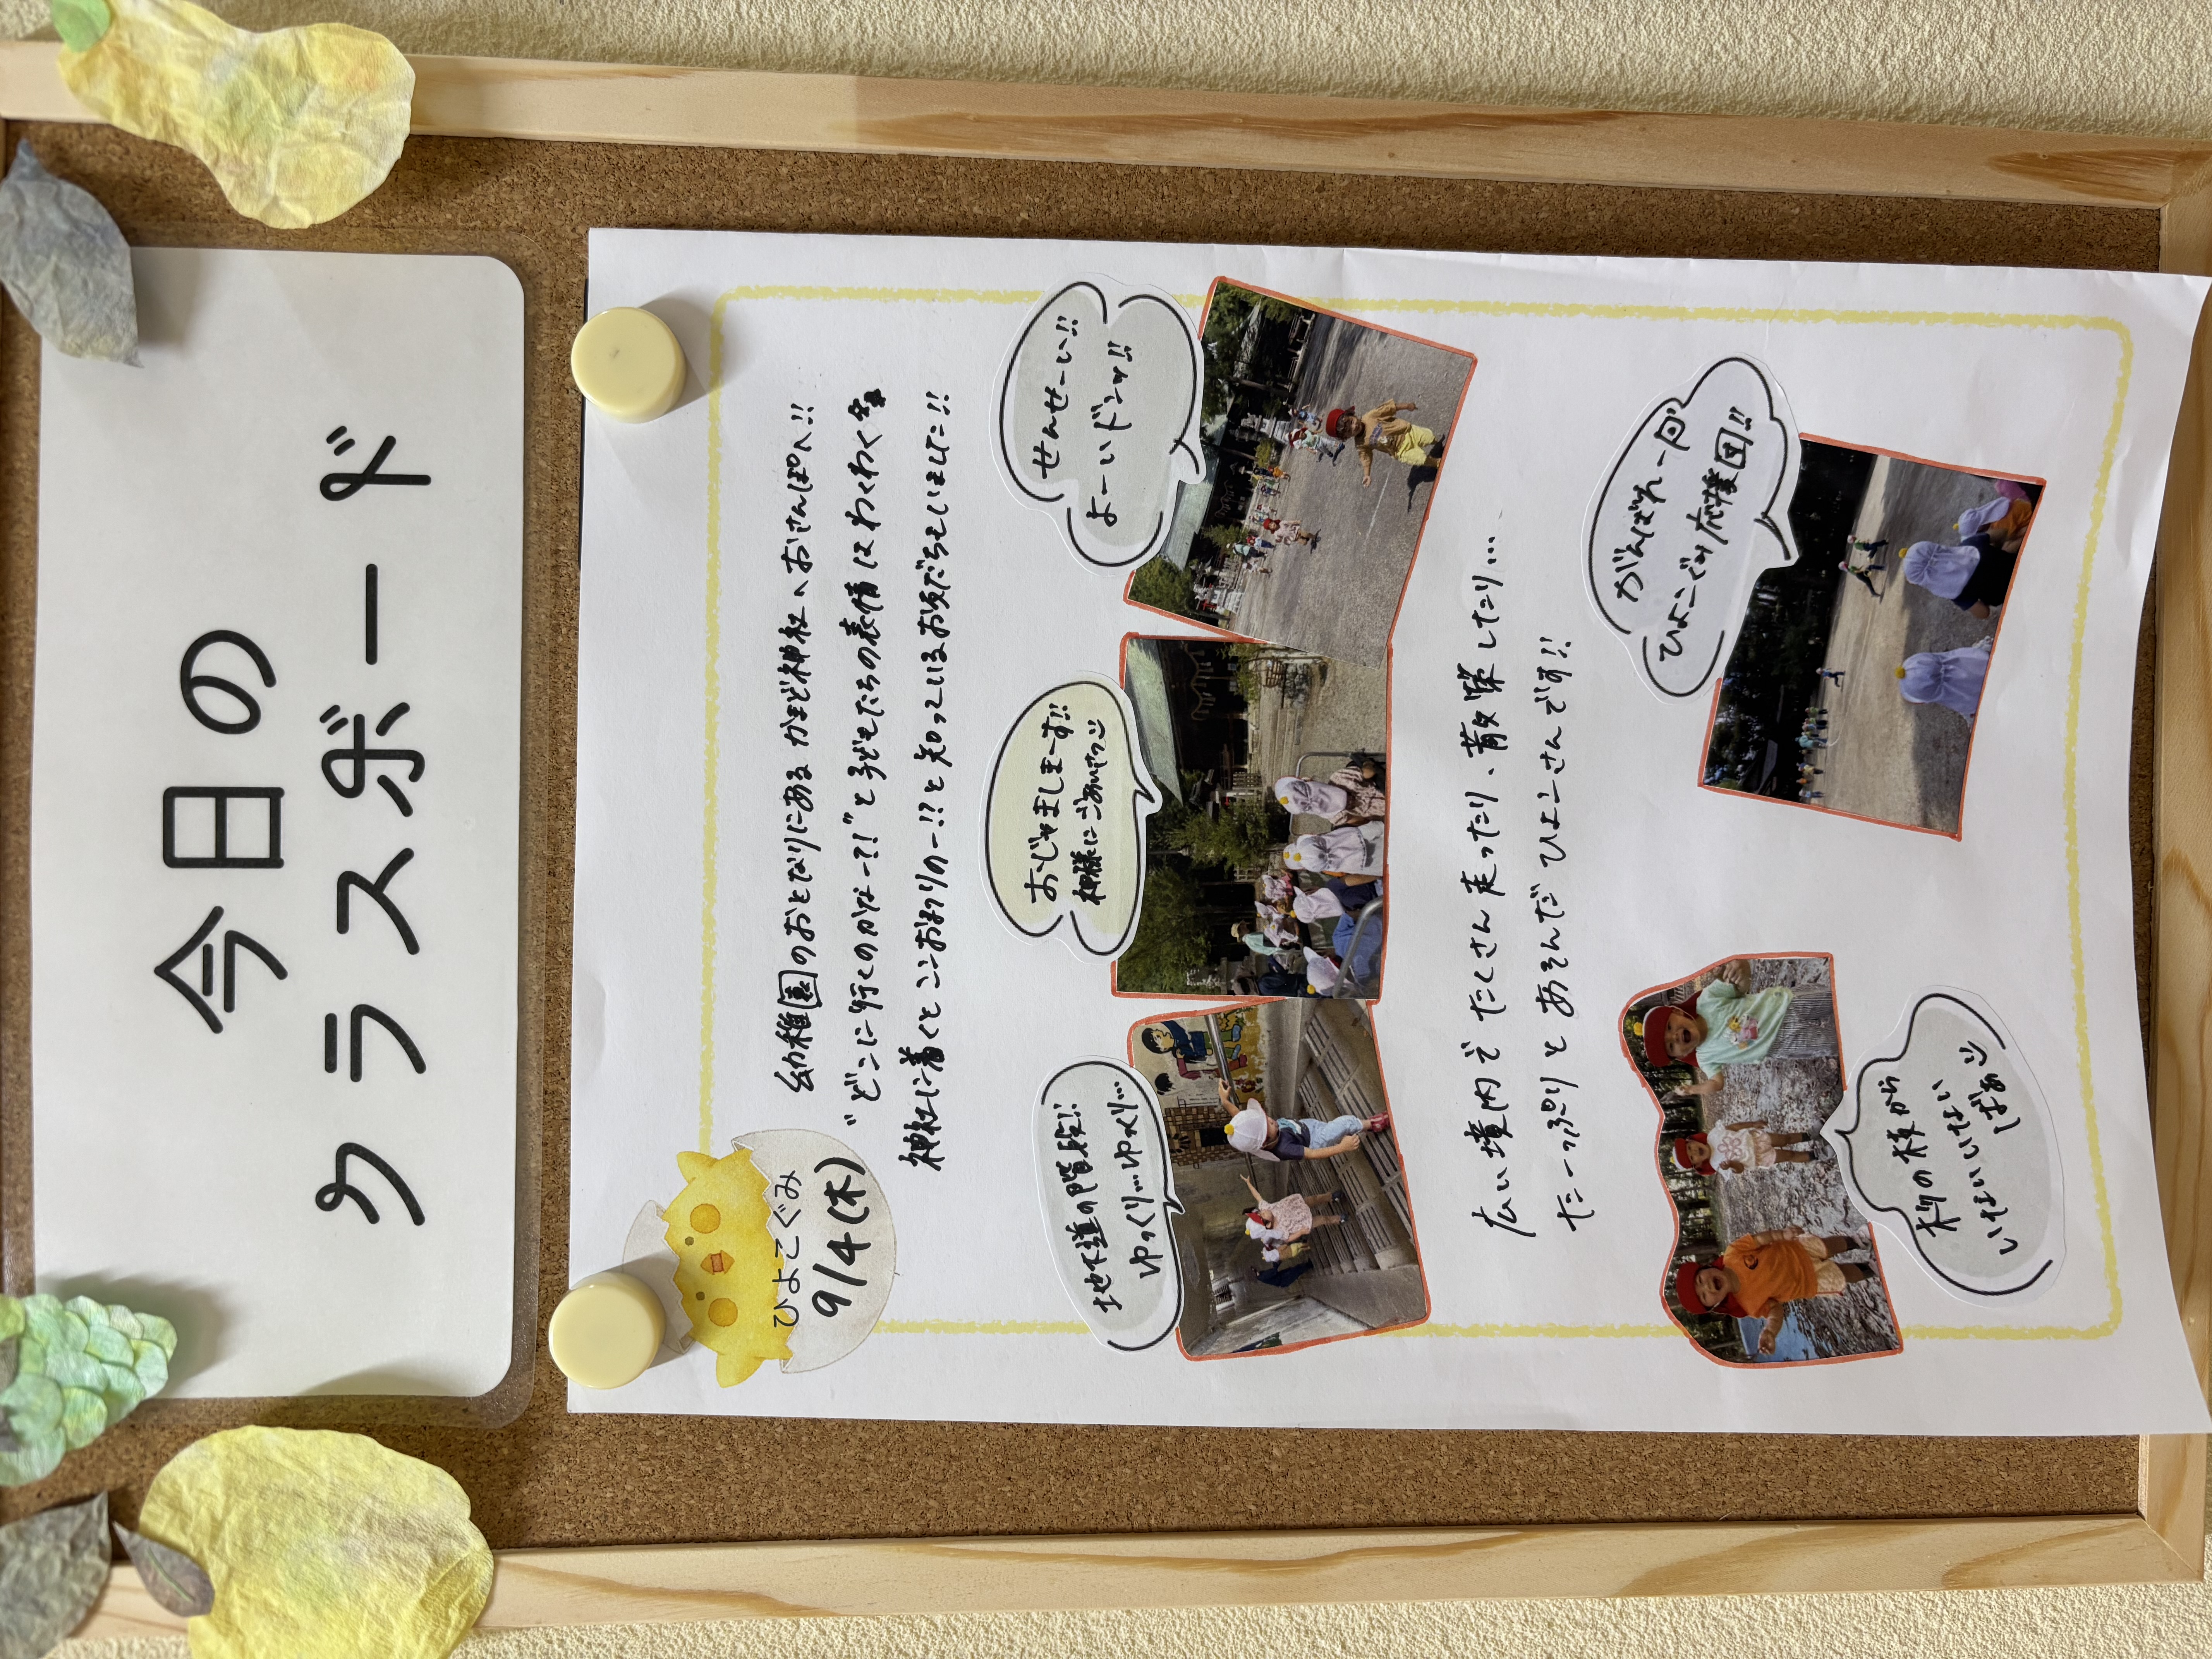 今日の
クラスボード
ひよこぐみ
9/4(木)
幼稚園のおとなりにある かまど神社へおさんぽへ!!
"どこに行くのかなー?!"と子どもたちの表情はわくわく
神社に着くと ここおまつりのー!?と知っているお友だちもいました!!
地下道の階段!
ゆっくり…ゆっくり…
おじゃましまーす!!
神様にごあいさつ
せんせーい!!
よーいドンッ!!
広い境内で たくさん走ったり、散策したり…
たーっぷりと あそんだ ひよこさんです!!
木の株から
いないいない
ばあ
がんばれー!
ひよこぐみ応援団!!